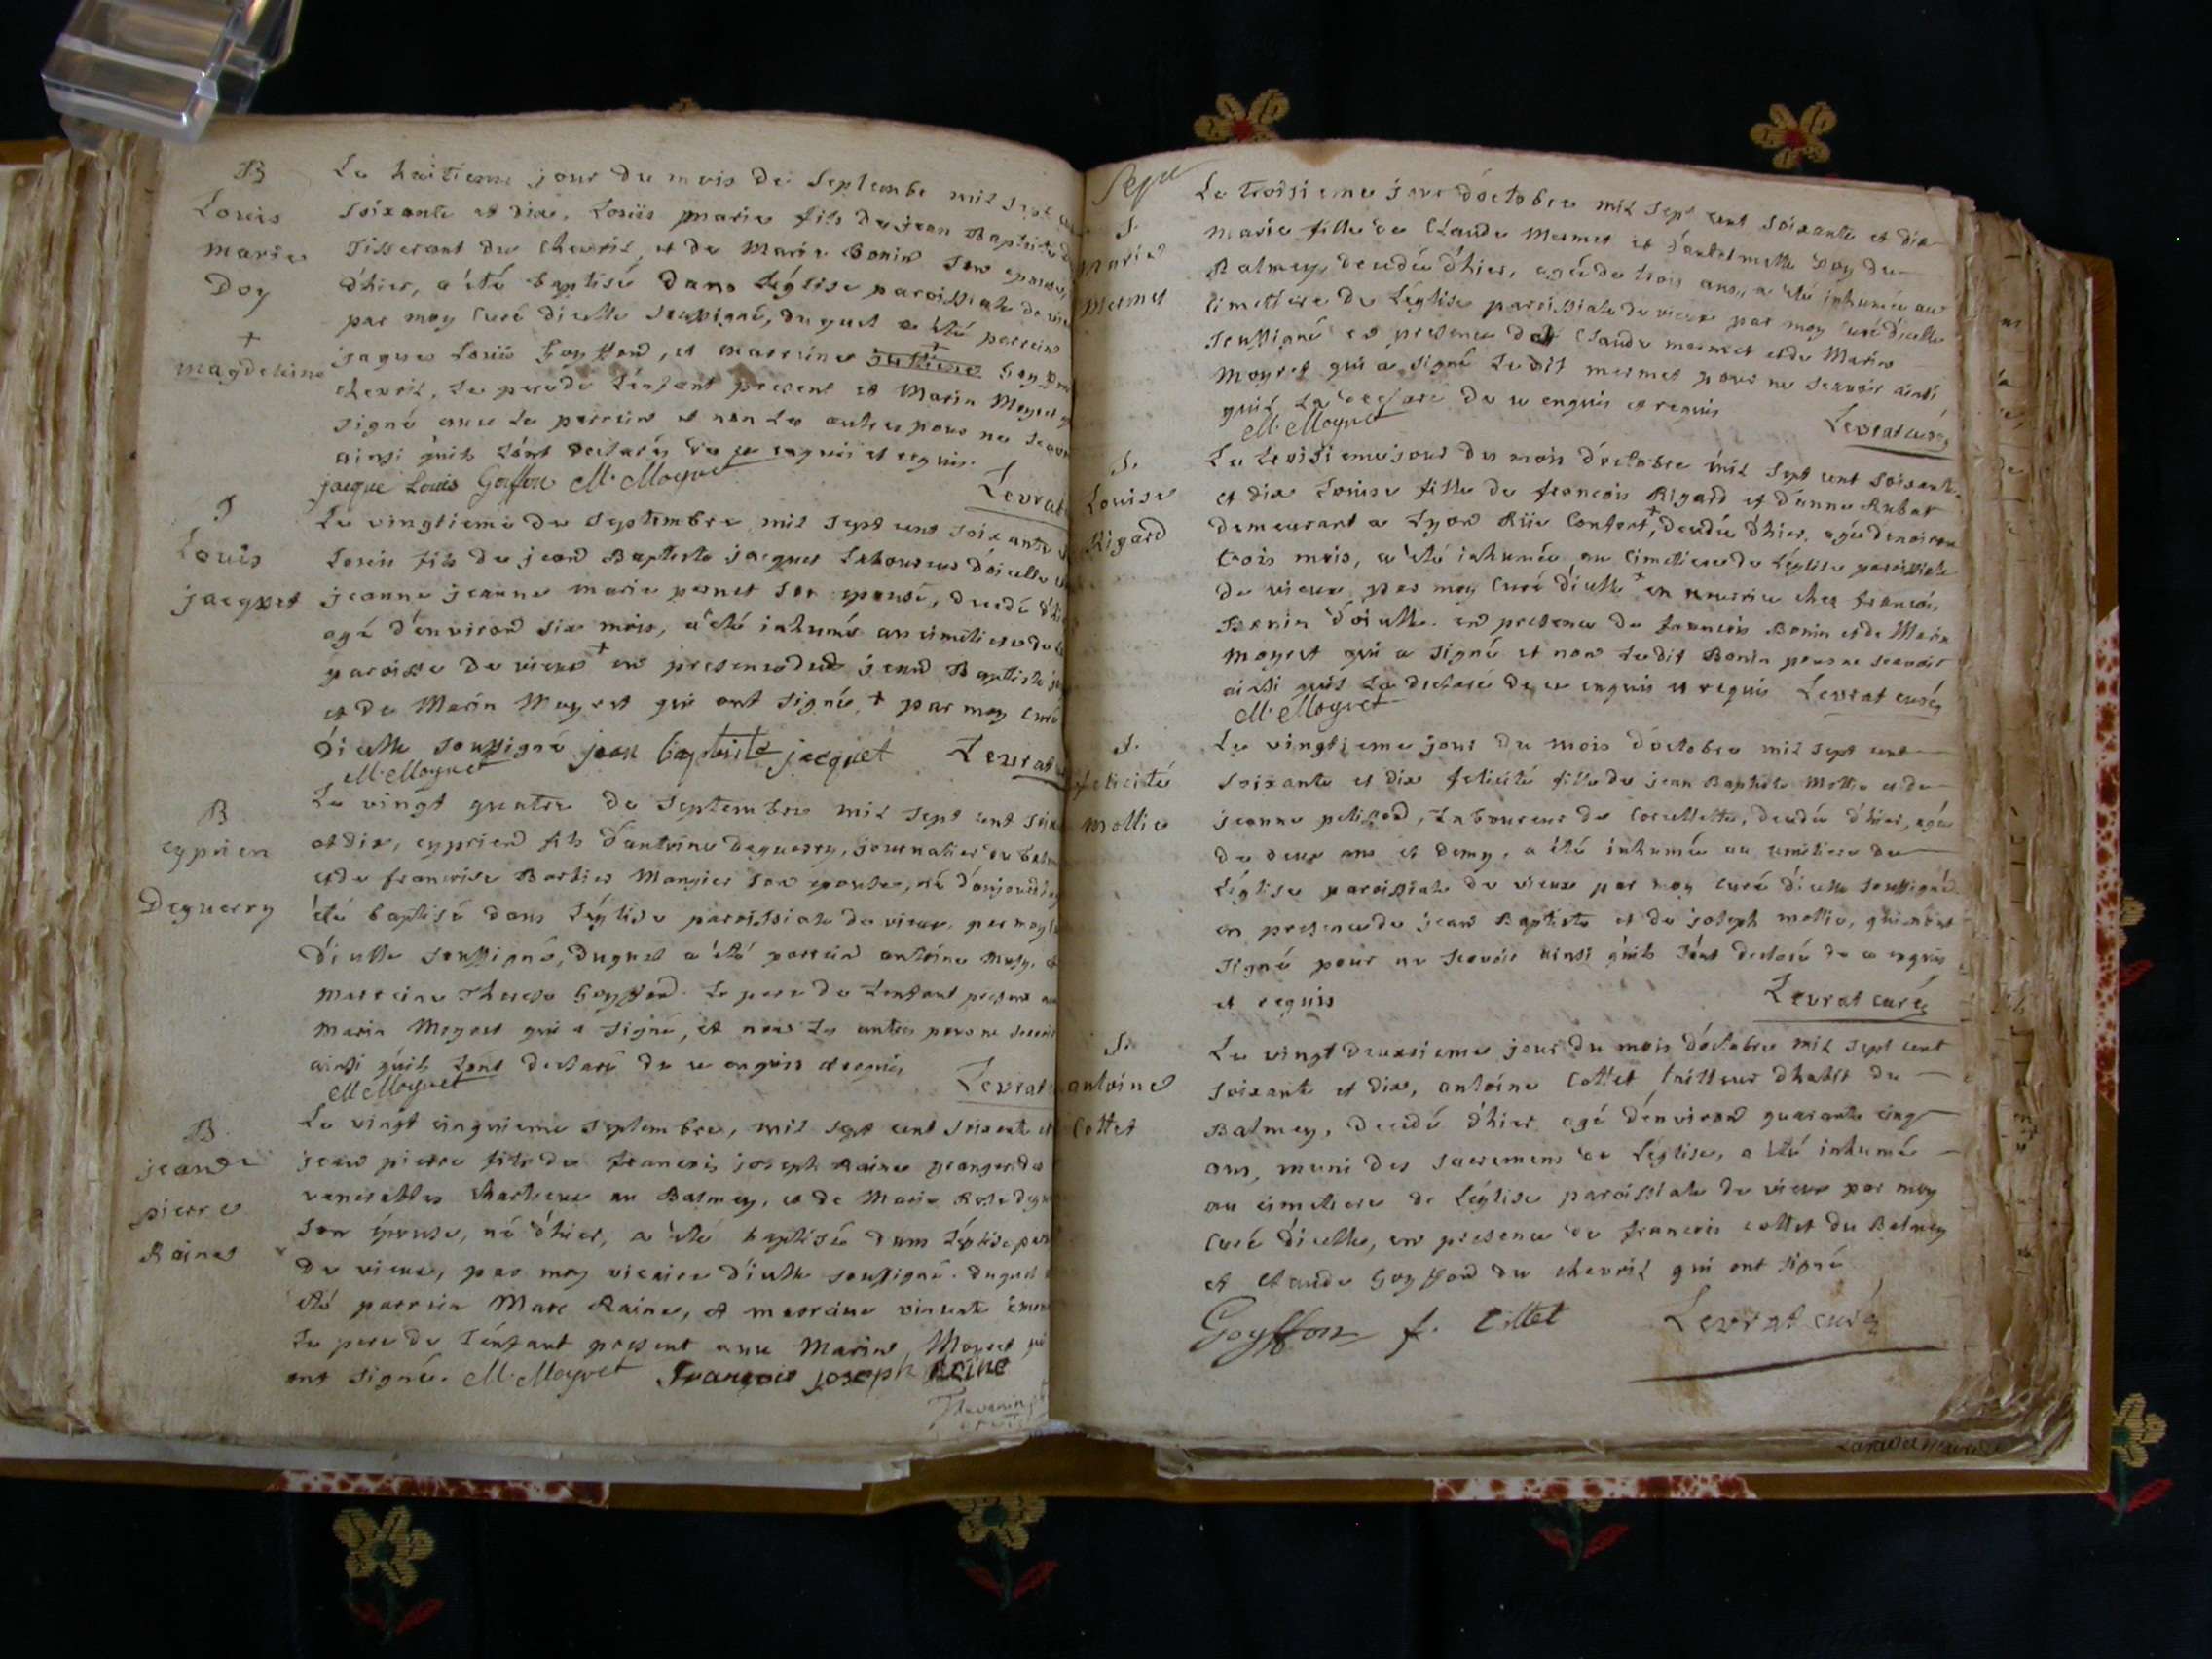 B
Louis
marie
Doy
+
magdelaine
Le huitieme jour du mois de Septembe mil sept
soixante et dix, Loüis marie fils de jean Baptiste
Tisserant du Chevril, et de Marie Bonin son epouse,
d'hier, a été baptisé dans Léglise paroissiale de vieux
par moy curé dicelle soussigné, duquel a été parrein
jaque Loüis Goyffon, et marreine Goy
chevril, Le pere de Lenfant present et Marin Moyret
signé avec Le parrein et non Les autres pour ne scavoir
ainsi quils Lont declaréz de ce enquis et requis.
jacque Louis Goiffon M. Moyret
Levrat
S
Louis
jacquet
Le vingtieme de Septembre mil sept cent soixante
Loüis fils de jean Baptiste jacquet Laboureur dvieux
jeanne jeanne marie pernet son epouse, decedé d'hier
agé d'environ six mois, a été inhumé au cimetiere de
paroisse de vieux + en presence dud jean Baptiste
et de Marin Moyret qui ont signé, + par moy curé
dicelle soussigné jean baptiste jacquet Levrat
M. Moyret
B
cyprien
Deguerry
Le vingt quatre de Septembre mil sept cent soix
et dix, cyprien fils d'antoine Deguerry, journalier du balm
et de francoise Barbier Mangier son epouse, né d'aujourdhuy
été baptisé dans Léglise paroissiale de vieux, par moy
dicelle soussigné, duquel a été parrein antoine Musy, et
marreine Therese Goyffon. Le pere de Lenfant present
Marin Moyret qui a signé, et non Les autres pour ne scavoir
ainsi quils Lont declaré de ce enquis et requis
M Moyret
Levrat
B
jean
pierre
Raines
Le vingt cinquieme septembre, mil sept cent soixante et
jean pierre fils de francois joseph Raine granger des
venerables chartreux au Balmey, et de Marie Rose
son épouse, né d'hier, a été baptisé dans Léglise par
de vieux, par moy vicaire dicelle soussigné. duquel
été parrein Marc Raine, et marreine vincente
Le pere de Lenfant present avec Marin Moyret
ont signé. M. Moyret François joseph Reine
Thevenin
Sepu
S.
Marie
Mermet
Le troisieme jour d'octobre mil sept cent soixante et dix
Marie fille de Claude Mermet et d'antelmette Doy du
Balmey, decedée d'hier, agée de trois ans, a été inhumée au
cimetiere de Léglise paroissiale de vieux par moy curé dicelle
soussigné en presence de Claude mermet et de Marin
Moyret qui a signé Ledit mermet pour ne scavoir ainsi
quil La declaré de ce enquis et requis
M. Moyret
Levrat curéz
S.
Louise
Rigard
Le troisieme jour du mois d'octobre mil sept cent soixante
et dix Loüise fille de francois Rigard et d'anne Rubat
demeurant a Lyon Rüe Confort, + decedée d'hier, agée denviron
trois mois, a été inhumée au cimetiere de Léglise paroissiale
de vieux par moy curé dicelle + en nourrice chez francois
Bonin d'oicelle. en presence de francois Bonin et de Marin
moyret qui a signé et non Ledit Bonin pour ne scavoir
ainsi quil La declaré de ce enquis et requis Levrat curéz
M. Moyret
S.
felicité
Mollie
Le vingtieme jour du mois d'octobre mil sept cent
soixante et dix felicité fille de jean Baptiste Mollie et de
jeanne peligod, Laboureur de Corcellette, decedée d'hier, agée
de deux ans et demy, a été inhumée au cimetiere de
Léglise paroissiale de vieux par moy curé dicelle soussigné
en presence de jean Baptiste et de joseph mollie, qui n'ont
signé pour ne scavoir ainsi quils Lont declaré de ce enquis
et requis
Levrat curéz
S.
antoine
Cottet
Le vingt deuxsieme jour du mois d'octobre mil sept cent
soixante et dix, antoine Cottet tailleur dhabit du
Balmey, decedé d'hier agé d'environ quarante cinq
ans, muni des sacremens de Léglise, a été inhumé
au cimetiere de Léglise paroissiale de vieux par moy
curé dicelle, en presence de francois cottet du Balmey
et Claude Goyffon du chevril qui ont signé
Goyffon f. Cottet Levrat curéz